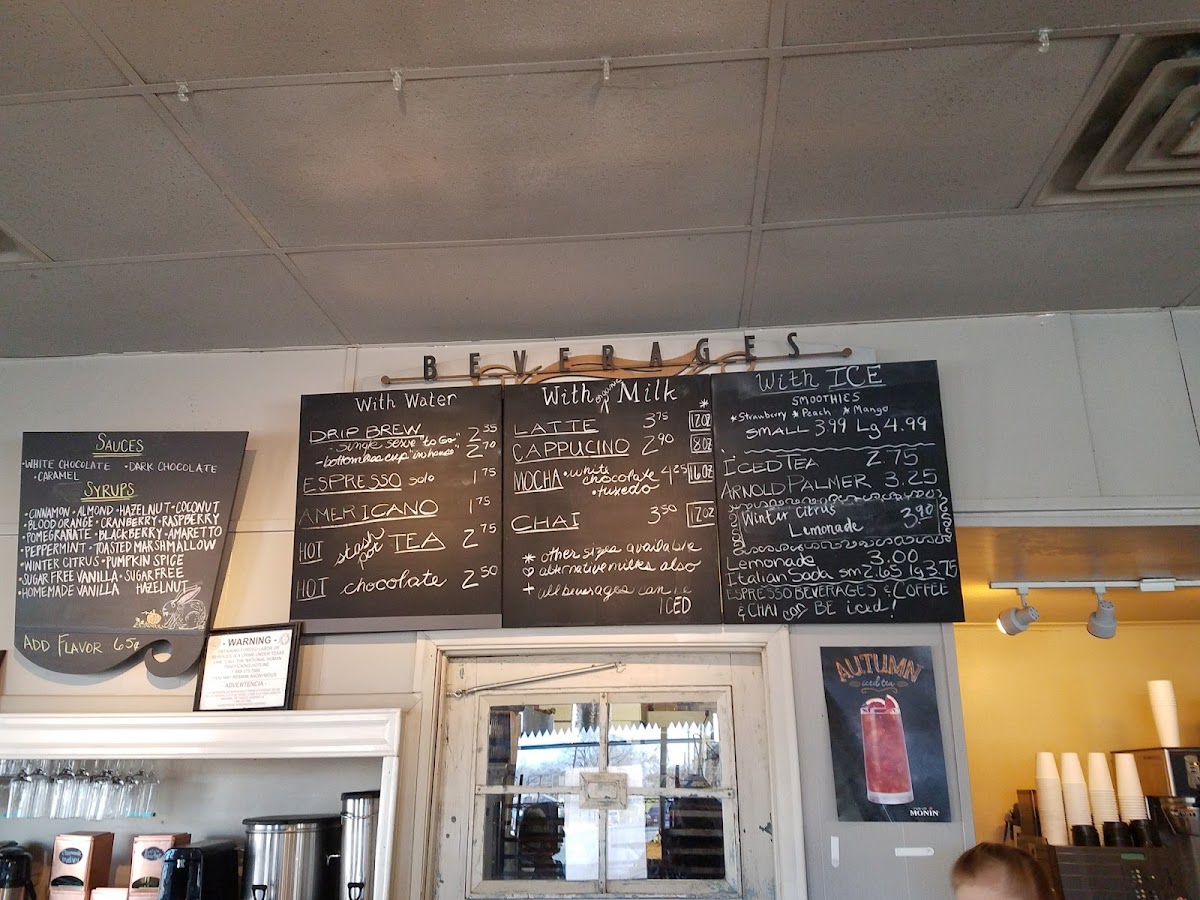 BEVERAGES
SAUCES
•WHITE CHOCOLATE •DARK CHOCOLATE
•CARAMEL
SYRUPS
•CINNAMON •ALMOND •HAZELNUT •COCONUT
•BLOOD ORANGE •CRANBERRY •RASPBERRY
•POMEGRANATE •BLACKBERRY •AMARETTO
•PEPPERMINT •TOASTED MARSHMALLOW
•WINTER CITRUS •PUMPKIN SPICE
•SUGAR FREE VANILLA •SUGAR FREE
•HOMEMADE VANILLA HAZELNUT
ADD FLAVOR 65¢
With Water
DRIP BREW 2.35
-single serve "to Go"
-bottomless cup "in house" 2.70
ESPRESSO solo 1.75
AMERICANO 1.75
HOT stash pot TEA 2.75
HOT chocolate 2.50
With organic Milk
*
LATTE 3.75 12oz
CAPPUCINO 2.90 8oz
MOCHA •white chocolate 4.25 16oz
•tuxedo
CHAI 3.50 12oz
* other sizes available
♡ alternative milks also
+ all beverages can be
ICED
With ICE
SMOOTHIES
*Strawberry *Peach *Mango
SMALL 3.99 Lg 4.99
ICED TEA 2.75
ARNOLD PALMER 3.25
Winter Citrus
Lemonade 3.90
Lemonade 3.00
Italian Soda sm 2.65 lg 3.75
ESPRESSO BEVERAGES & COFFEE
& CHAI can BE iced!
- WARNING -
ADVERTENCIA
AUTUMN
iced tea
MONIN